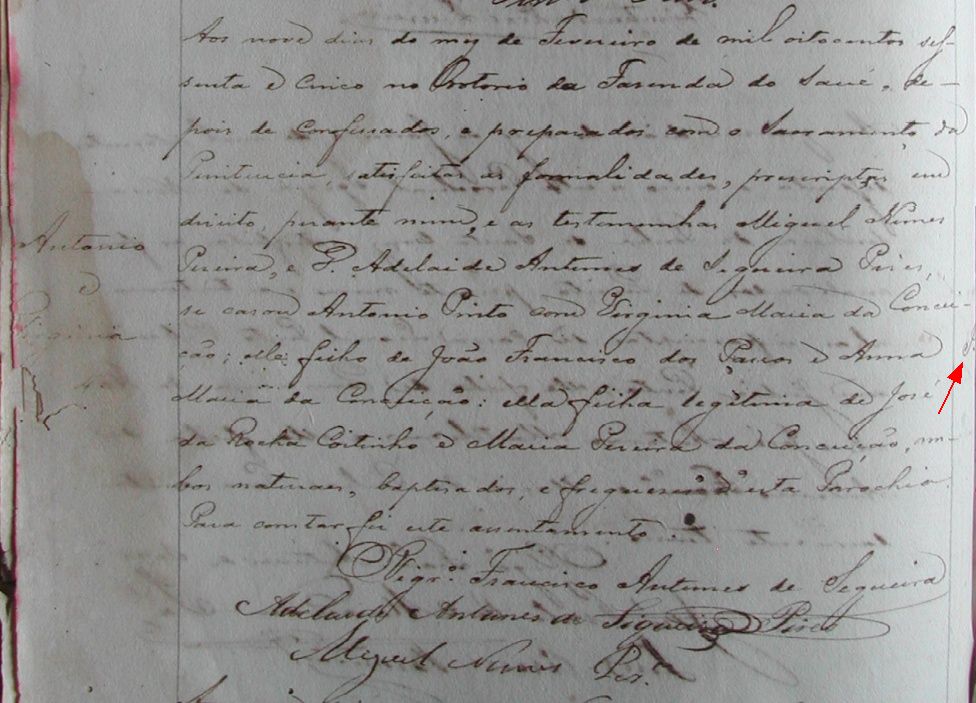 Aos nove dias do mez de Fevereiro de mil oitocentos ses-
senta e cinco no Oratorio da Fazenda do Saué, de-
pois de confessados, e preparados com o Sacramento da
Penitencia, satisfeitas as formalidades, prescriptas em
direito, perante mim, e as testemunhas Miguel Nunes
Antonio
Pereira, e P. Adelaide Antunes de Sequeira Pires,
e
se casou Antonio Pinto com Virginia Maria da Concei-
Virginia
ção; elle filho de João Francisco dos Passos e Anna
Maria da Conceição: ella filha legitima de José
da Rocha Coitinho e Maria Pereira da Conceição, am-
bos naturaes, baptisados, e freguezes d'esta Parochia.
Para constar fiz este assentamento.
Vigr.o Francisco Antunes de Sequeira
Adelaide Antunes de Sigueira Pires
Miguel Nunes Per.a